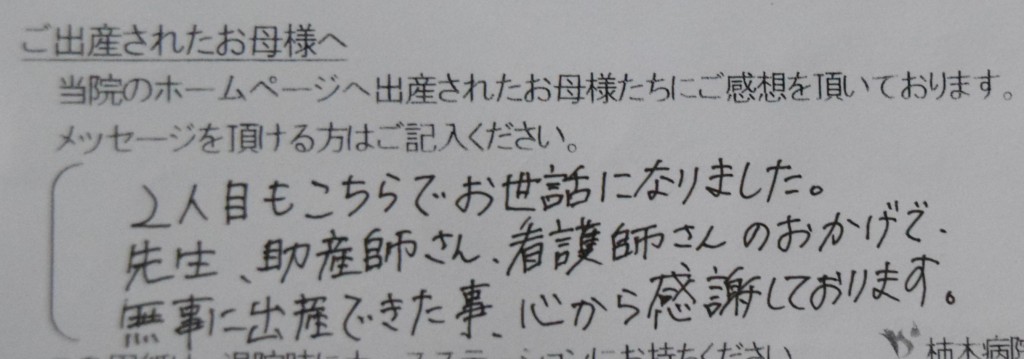 ご出産されたお母様へ
当院のホームページへ出産されたお母様たちにご感想を頂いております。
メッセージを頂ける方はご記入ください。
2人目もこちらでお世話になりました。
先生、助産師さん、看護師さんのおかげで、
無事に出産できた事、心から感謝しております。